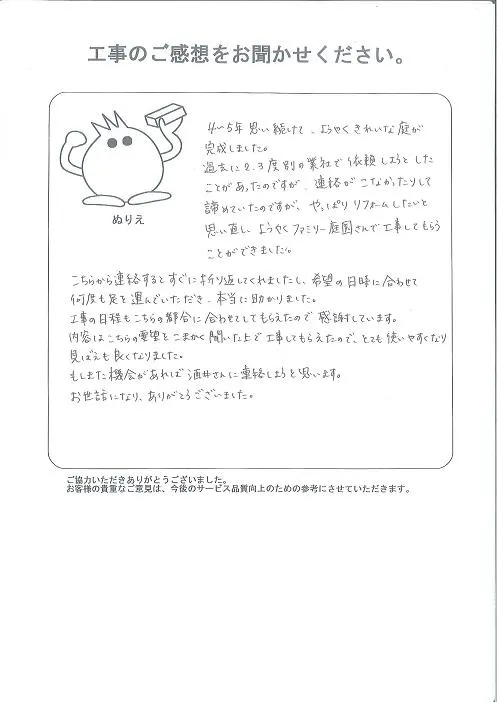 工事のご感想をお聞かせください。
ぬりえ
4〜5年思い続けて、ようやくきれいな庭が
完成しました。
過去に2.3度別の業社で依頼しようとした
ことがあったのですが、連絡がこなかたりして
諦めていたのですが、やっぱりリフォームしたいと
思い直し、ようやくファミリー庭園さんで工事してもらう
ことができました。
こちらから連絡するとすぐに折り返してくれましたし、希望の日時に合わせて
何度も足を運んでいただき、本当に助かりました。
工事の日程もこちらの都合に合わせてしてもらえたので感謝しています。
内容はこちらの要望をこまかく聞いた上で工事してもらえたので、とても使いやすくなり
見ばえも良くなりました。
もしまた機会があれば酒井さんに連絡しようと思います。
お世話になり、ありがとうございました。
ご協力いただきありがとうございました。
お客様の貴重なご意見は、今後のサービス品質向上のための参考にさせていただきます。